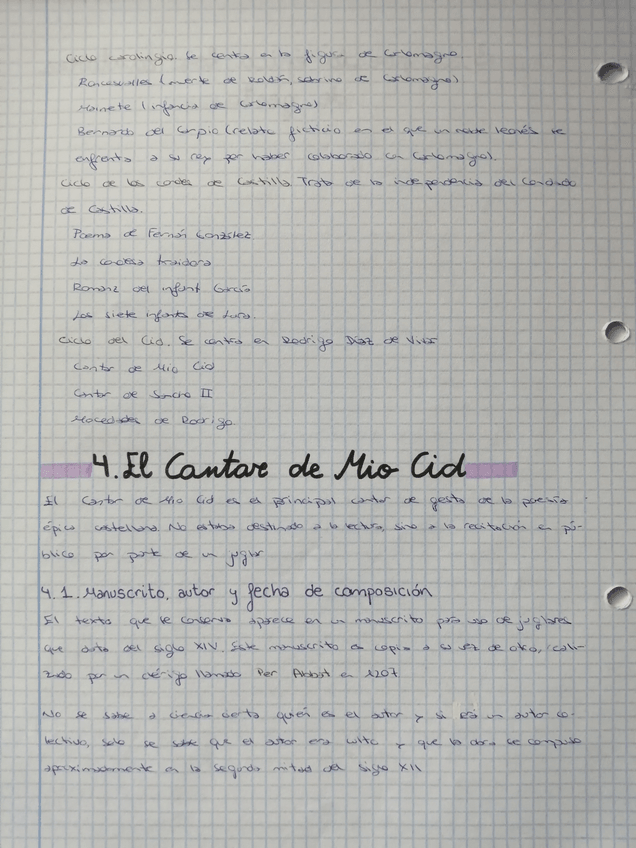 Ciclo carolingio. Se centra en la figura de Carlomagno.
Roncesvalles (muerte de Roldán, sobrino de Carlomagno)
Mainete (infancia de Carlomagno)
Bernardo del Carpio (relato ficticio en el que un noble leonés se
enfrenta a su rey por haber colaborado con Carlomagno).
Ciclo de los condes de Castilla. Trata de la independencia del Condado
de Castilla.
Poema de Fernán González
La condesa traidora
Romanz del infant García
Los siete infantes de Lara.
Ciclo del Cid. Se centra en Rodrigo Díaz de Vivar
Cantar de Mio Cid
Cantar de Sancho II
Mocedades de Rodrigo
4. El Cantar de Mio Cid
El Cantar de Mio Cid es el principal cantar de gesta de la poesía
épica castellana. No estaba destinado a la lectura, sino a la recitación en pú-
blico por parte de un juglar
4.1. Manuscrito, autor y fecha de composición
El texto que se conserva aparece en un manuscrito para uso de juglares
que data del siglo XIV. Este manuscrito es copia a su vez de otro, reali-
zado por un clérigo llamado Per Abbat en 1207
No se sabe a ciencia cierta quién es el autor y si es un autor co-
lectivo, solo se sabe que el autor era culto y que la obra se compuso
aproximadamente en la segunda mitad del siglo XII